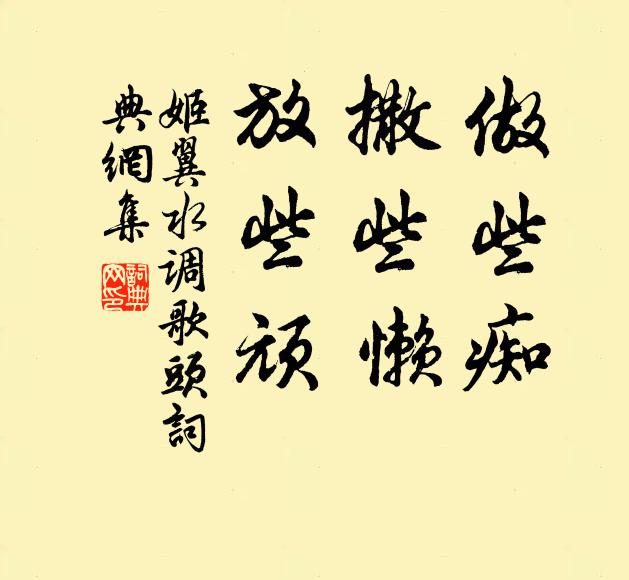 做些痴
撒些懒
放些顽
姬翼水调歌頭詞
典網集
詞典网印